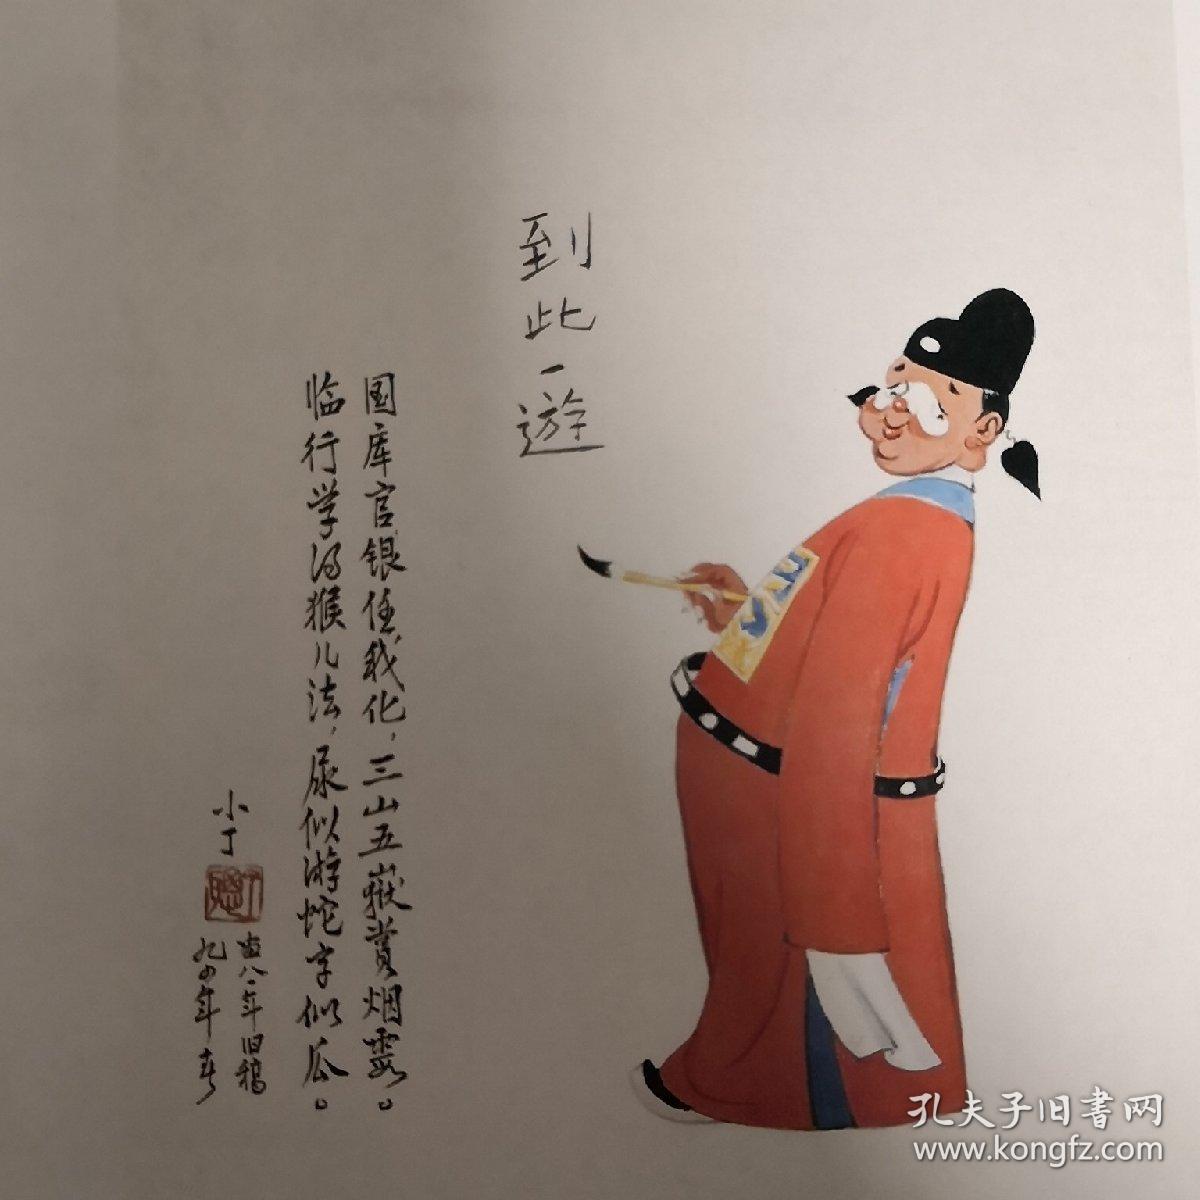 到此一遊
国库官银任我化，三山五嶽赏烟霞。
临行学得猴儿法，尿似游蛇字似瓜。
小丁
八一年旧稿
九四年春
孔夫子旧書网
www.kongfz.com